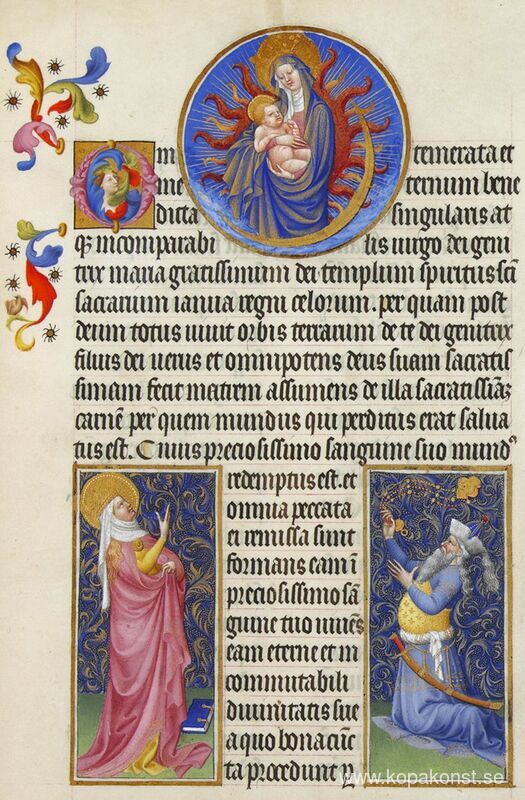 m temerata et
me ternum bene
dicta singularis at
qꝫ incomparabi lis uirgo dei geni
trix maria gratissimam dei templum spiritus sc̃i
sacrarium ianua regni celorum. per quam post
deum totus uiuit orbis terrarum de te dei genitrix
filius dei uerus et omnipotens deus suam sacratis
simam fecit matrem assumens de illa sacratissiãꝫ
carnẽ per quem mundus qui perditus erat salua
tus est. Cuius preciosissimo sanguine suo mundꝰ
redemptus est. et
omnia peccata
ei remissa sunt
formans eam ĩ
preciosissimo sã
guine tuo
eam eterne et in
commutabili
diuinitatis sue
a quo bona cũc
ta procedunt
www.kopakonst.se